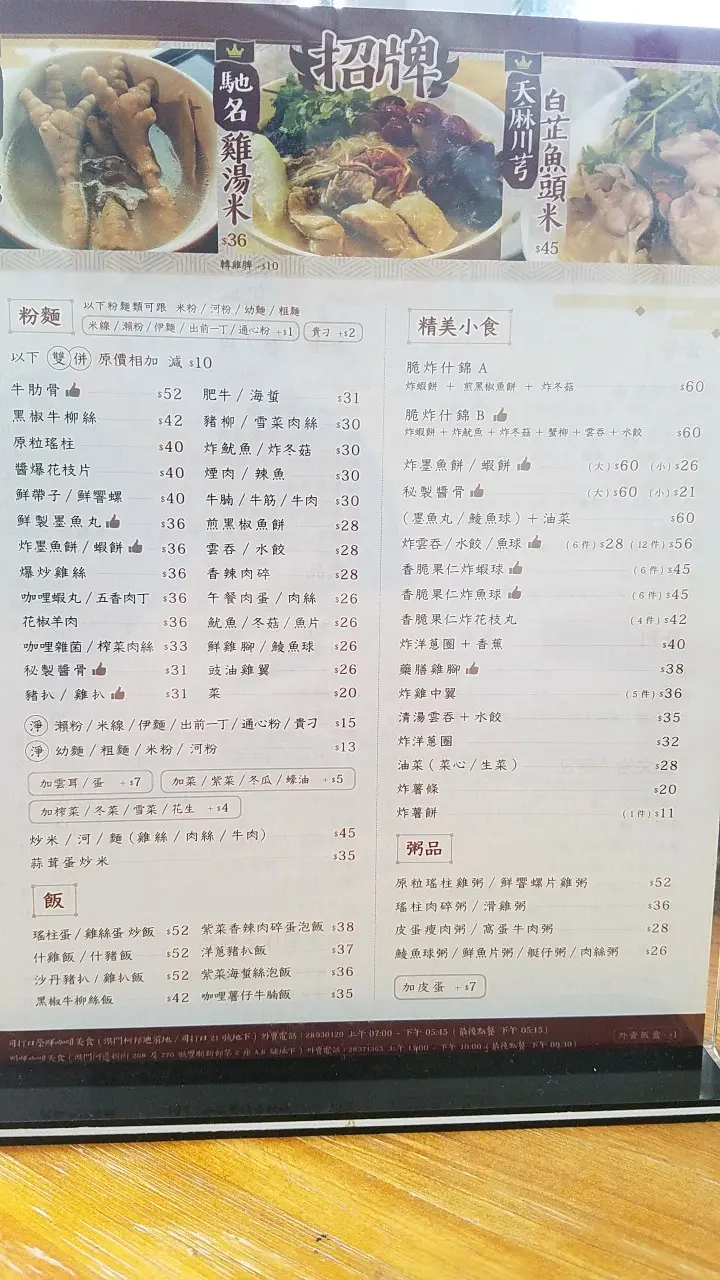 招牌
馳名
雞湯米
$36
轉雞脾 +$10
天麻川芎
白芷魚頭米
$45
粉麵
以下粉麵類可跟 米粉/河粉/幼麵/粗麵
米線/瀨粉/伊麵/出前一丁/通心粉 +$1
貴刁 +$2
以下 雙併 原價相加 減 $10
牛肋骨 $52
黑椒牛柳絲 $42
原粒瑤柱 $40
醬爆花枝片 $40
鮮帶子/鮮響螺 $40
鮮製墨魚丸 $36
炸墨魚餅/蝦餅 $36
爆炒雞絲 $36
咖哩蝦丸/五香肉丁 $36
花椒羊肉 $36
咖哩雜菌/榨菜肉絲 $33
秘製醬骨 $31
豬扒/雞扒 $31
肥牛/海蜇 $31
豬柳/雪菜肉絲 $30
炸魷魚/炸冬菇 $30
煙肉/辣魚 $30
牛腩/牛筋/牛肉 $30
煎黑椒魚餅 $28
雲吞/水餃 $28
香辣肉碎 $28
午餐肉蛋/肉絲 $26
魷魚/冬菇/魚片 $26
鮮雞腳/鯪魚球 $26
豉油雞翼 $26
菜 $20
淨 瀨粉/米線/伊麵/出前一丁/通心粉/貴刁 $15
淨 幼麵/粗麵/米粉/河粉 $13
加雲耳/蛋 +$7
加菜/紫菜/冬瓜/蠔油 +$5
加榨菜/冬菜/雪菜/花生 +$4
炒米/河/麵(雞絲/肉絲/牛肉) $45
蒜茸蛋炒米 $35
飯
瑤柱蛋/雞絲蛋 炒飯 $52
什雞飯/什豬飯 $52
沙丹豬扒/雞扒飯 $52
黑椒牛柳絲飯 $42
紫菜香辣肉碎蛋泡飯 $38
洋蔥豬扒飯 $37
紫菜海蜇絲泡飯 $36
咖哩薯仔牛腩飯 $35
精美小食
脆炸什錦 A
炸蝦餅 + 煎黑椒魚餅 + 炸冬菇 $60
脆炸什錦 B
炸蝦餅+炸魷魚+炸冬菇+蟹柳+雲吞+水餃 $60
炸墨魚餅/蝦餅 (大)$60 (小)$26
秘製醬骨 (大)$60 (小)$21
(墨魚丸/鯪魚球)+油菜 $60
炸雲吞/水餃/魚球 (6件)$28 (12件)$56
香脆果仁炸蝦球 (6件)$45
香脆果仁炸魚球 (6件)$45
香脆果仁炸花枝丸 (4件)$42
炸洋蔥圈+香蕉 $40
藥膳雞腳 $38
炸雞中翼 (5件)$36
清湯雲吞+水餃 $35
炸洋蔥圈 $32
油菜(菜心/生菜) $28
炸薯條 $20
炸薯餅 (1件)$11
粥品
原粒瑤柱雞粥/鮮響螺片雞粥 $52
瑤柱肉碎粥/滑雞粥 $36
皮蛋瘦肉粥/窩蛋牛肉粥 $28
鯪魚球粥/鮮魚片粥/艇仔粥/肉絲粥 $26
加皮蛋 +$7